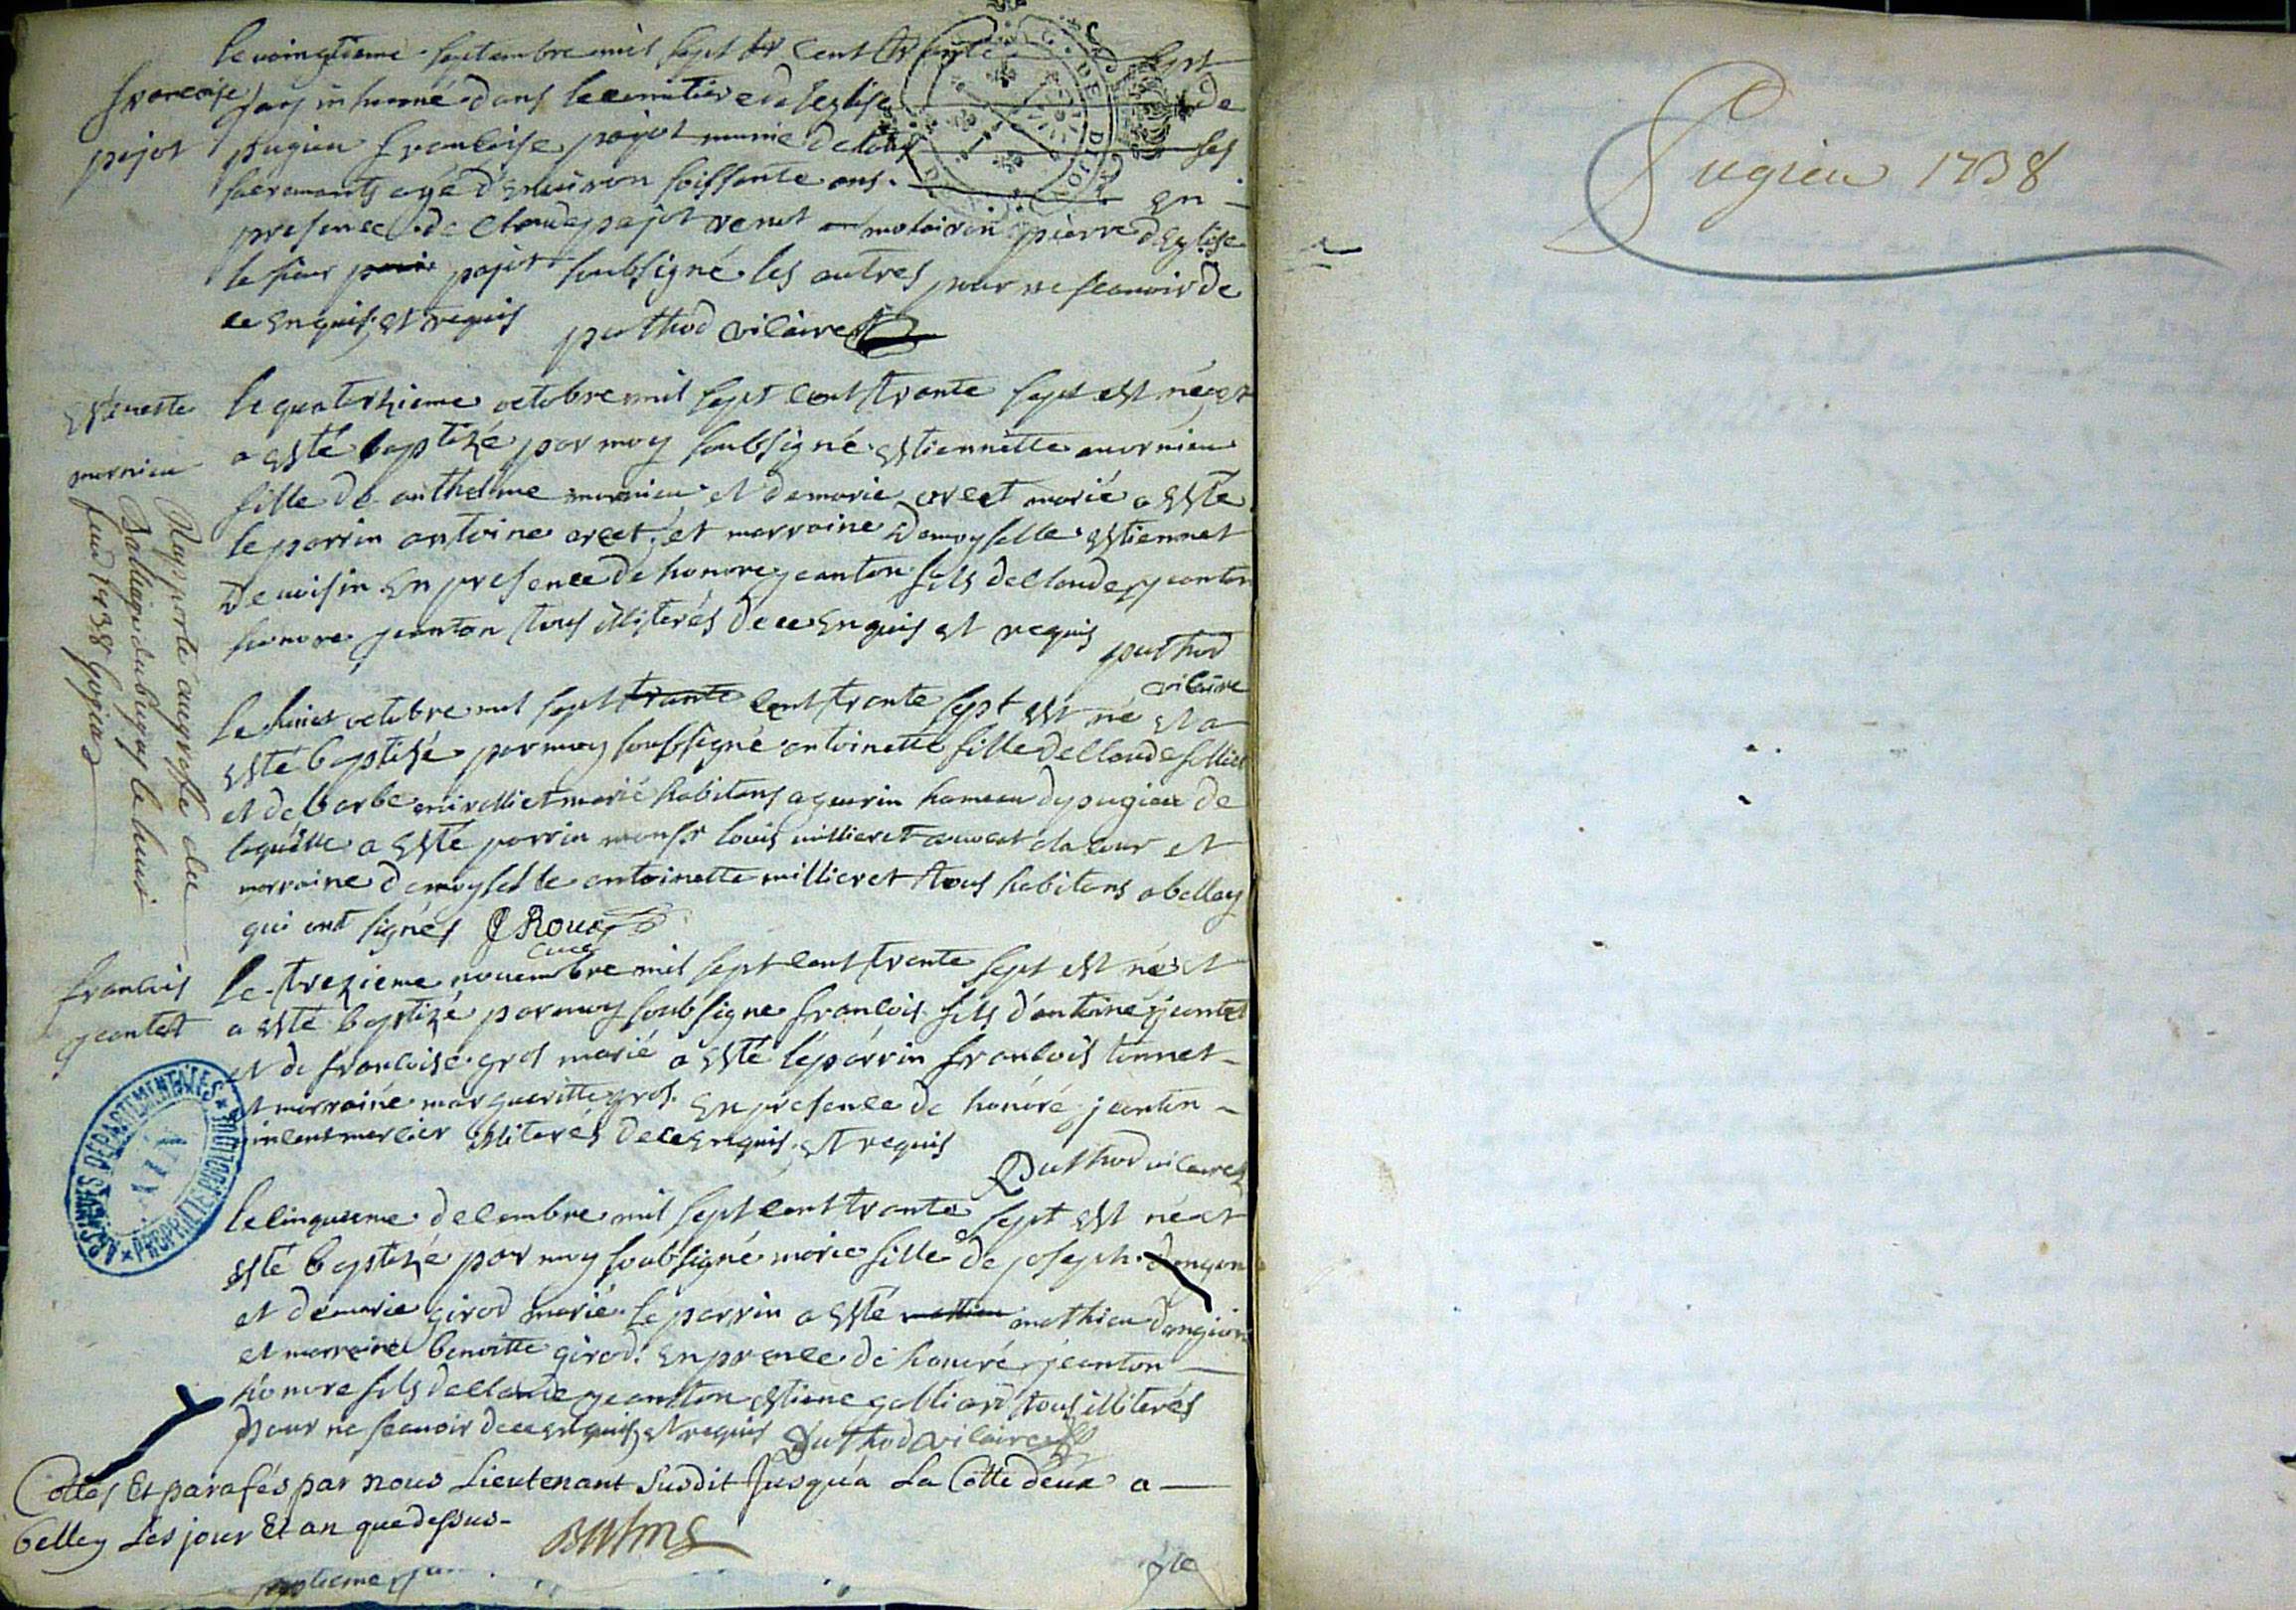 le vaingtieme septambre mil sept cent trante sept
francoise
pajot
jay in humé dans le cemitiere de l'eglise de
pugieu francoise pajot munie de tous ses
sacremants agé d'environ soissante ans. en
presence de claude pajot venet maturin pierre d'eglise
le sieur pajot soubsigné les autres pour ne scauoir de
ce enquis et requis puthod vicaire
Estienette
mornieu
le quaterzieme octobre mil sept cent trante sept est né et
a esté baptizé par moy soubsigné estiennette mornieu
fille de anthelme mornieu et de marie orcet marié a esté
le parrin antoine orcet et marraine damoyselle estiennet
de uoisin en presence de honore jeanton fils de claude jeanton
honore jeanton tous illiterés de ce enquis et requis puthod
vicaire
Rapporté au greffe du
Balliage du bugey le huit
feu 1738 Gojoud
le huict octobre mil sept trante cent trante sept est né et a
esté baptisé par moy soubsigné antoinette fille de claude
et de barbe marié habitans a guerin hameau de pugieu de
laquelle a esté parrin monsr louis millieret auocat a la cour et
marraine damoyselle antoinette millieret tous habitans a belley
qui ont signés J Roux
Curé
francois
jeantet
le trezieme nouembre mil sept cent trante sept est né et
a esté baptizé par moy soubsigne francois fils d'antoine jeantet
et de francoise gros marié a esté le parrin francois tonnet
et marraine margueritte gros. en presence de honoré jeanton
uincent mercier illiterés de ce enquis et requis
Puthod vicaire
ARCHIVES DEPARTEMENTALES
AIN
PROPRIETE PUBLIQUE
le cinquieme decembre mil sept cent trante sept est né et
esté baptizé par moy soubsigné marie fille de joseph dangion
et de marie girod marié le parrin a esté mathieu dangion
et marraine benoitte girod. en presence de honoré jeanton
honore fils de claude jeanton estiene galliard tous illiterés
pour ne scauoir de ce enquis et requis Puthod vicaire
Cottés Et parafés par nous Lieutenant Susdit Jusqu'a La Cotte deux a
belley Les jour Et an que dessus
Balme
Pugieu 1738